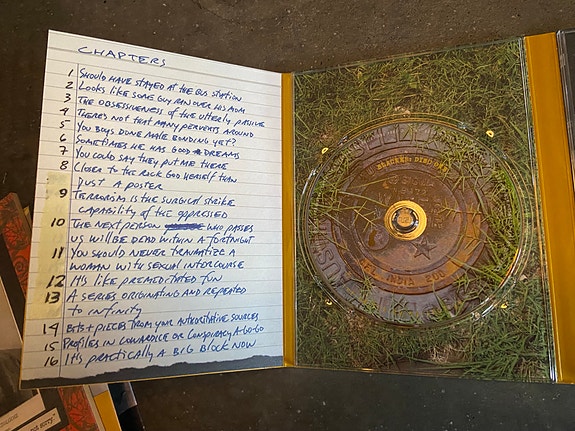 CHAPTERS
1 SHOULD HAVE STAYED AT THE BUS STATION
2 LOOKS LIKE SOME GUY RAN OVER HIS MOM
3 THE OBSESSIVENESS OF THE UTTERLY PASSIVE
4 THERE'S NOT THAT MANY PERVERTS AROUND
5 YOU BOYS DONE MALE BONDING YET?
6 SOMETIMES HE HAS GOOD DREAMS
7 YOU COULD SAY THEY PUT ME THERE
8 CLOSER TO THE ROCK GOD HERSELF THAN
JUST A POSTER
9 TERRORISM IS THE SURGICAL STRIKE
CAPABILITY OF THE OPPRESSED
10 THE NEXT PERSON WHO PASSES
US WILL BE DEAD WITHIN A FORTNIGHT
11 YOU SHOULD NEVER TRAUMATIZE A
WOMAN WITH SEXUAL INTERCOURSE
12 IT'S LIKE PREMEDITATED FUN
13 A SERIES ORIGINATING AND REPEATED
TO INFINITY
14 BITS + PIECES FROM YOUR AUTHORITATIVE SOURCES
15 PROFILES IN COWARDICE OR CONSPIRACY A-GO-GO
16 IT'S PRACTICALLY A BIG BLOCK NOW
SLACKER: DISC ONE
INDIA